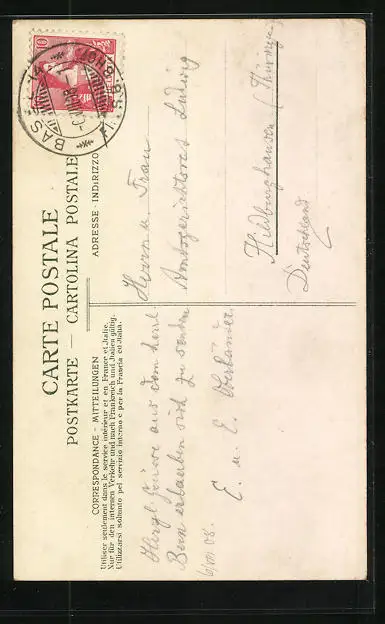 CARTE POSTALE
POSTKARTE — CARTOLINA POSTALE
CORRESPONDANCE - MITTEILUNGEN
ADRESSE - INDIRIZZO
Utiliser seulement dans le service intérieur et en France et Italie.
Nur für den internen Verkehr und nach Frankreich und Italien gültig.
Utilizzarsi soltanto pel servizio interno e per la Francia ed Italia.
10
BAS
Herrn u. Frau
Amtsgerichtsrat Ludwig
Hildburghausen (Thüringen
Deutschland
Herzl. Grüsse aus dem herrl.
Bern erlauben sich zu senden
E. u. E. Oberländer.
6/VIII 08.